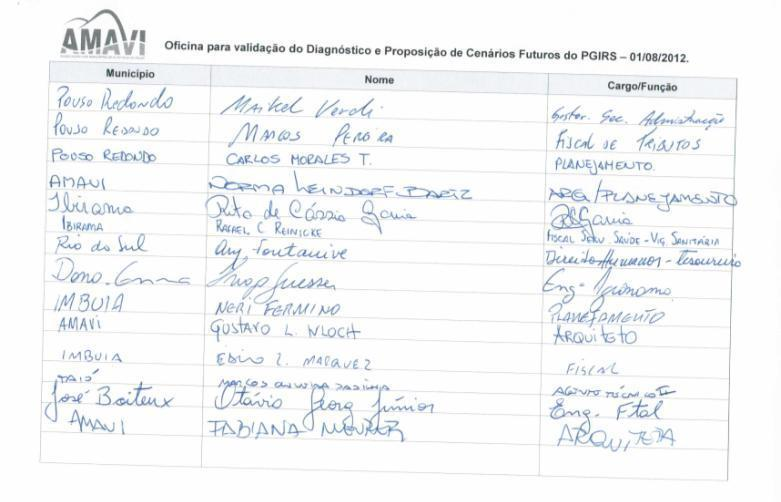 AMAVI
Oficina para validação do Diagnóstico e Proposição de Cenários Futuros do PGIRS – 01/08/2012.
Município Nome Cargo/Função
Pouso Redondo Maikel Verdi Gestor. Sec. Administração
Pouso Redondo Marcos Pereira Fiscal de Tributos
Pouso Redondo Carlos Morales T. Planejamento.
AMAVI Norma ARQ/Planejamento
Ibirama Rita de Cássia
Ibirama Rafael C Reinicke Fiscal Serv. Saúde - Vig. Sanitária
Rio do Sul Ary Fontanive Direitos Humanos - Tesoureiro
Dona. Emma Eng. Agrônomo
IMBUIA NERI FERMINO PLANEJAMENTO
AMAVI GUSTAVO L. ARQUITETO
IMBUIA MARQUEZ FISCAL
TAIÓ MARCOS
José Boiteux Otávio Georg Júnior Eng. Ftal
AMAVI FABIANA MEURER ARQUITETA